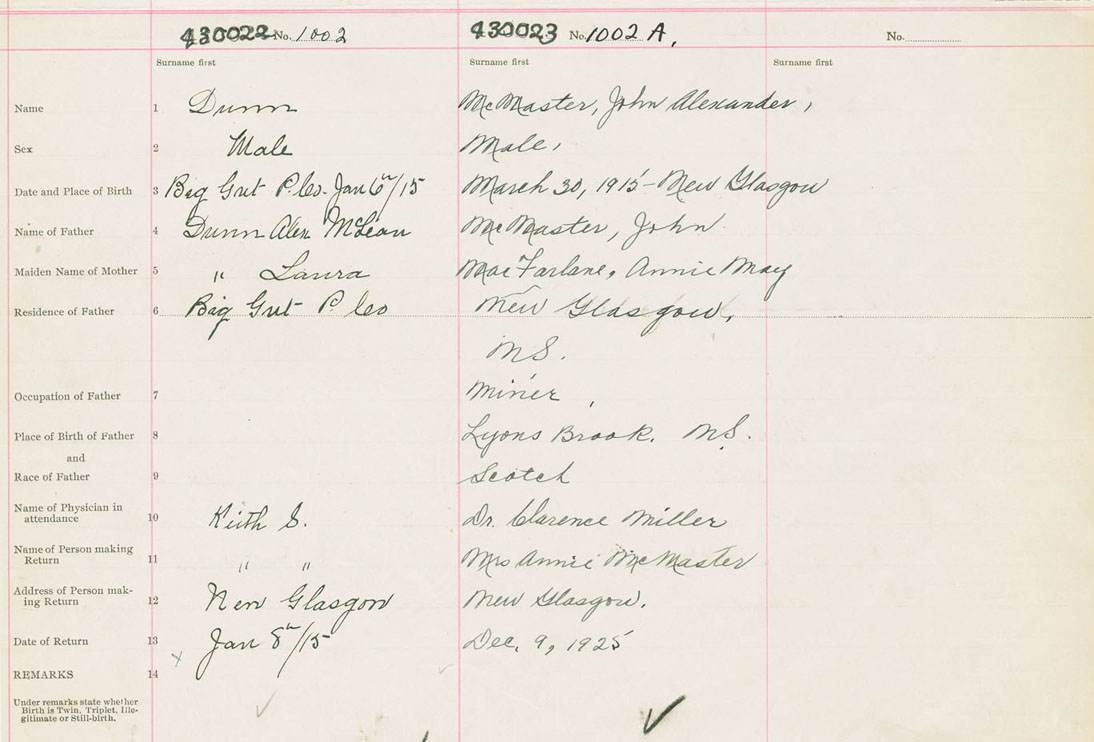 430022 No. 1002 430023 No. 1002 A. No.
Surname first Surname first Surname first
Name 1 Dunn McMaster, John Alexander,
Sex 2 Male Male,
Date and Place of Birth 3 Big Gut P. Co. Jan 6th/15 March 30, 1915 - New Glasgow
Name of Father 4 Dunn Alex McLean McMaster, John
Maiden Name of Mother 5 " Laura MacFarlane, Annie May
Residence of Father 6 Big Gut P. Co New Glasgow,
N.S.
Occupation of Father 7 Miner,
Place of Birth of Father 8 Lyons Brook. N.S.
and
Race of Father 9 Scotch
Name of Physician in
attendance 10 Keith S. Dr. Clarence Miller
Name of Person making
Return 11 " " Mrs Annie McMaster
Address of Person mak-
ing Return 12 New Glasgow New Glasgow.
Date of Return 13 Jan 8th/15 Dec. 9, 1925
REMARKS 14
Under remarks state whether
Birth is Twin, Triplet, Ille-
gitimate or Still-birth.